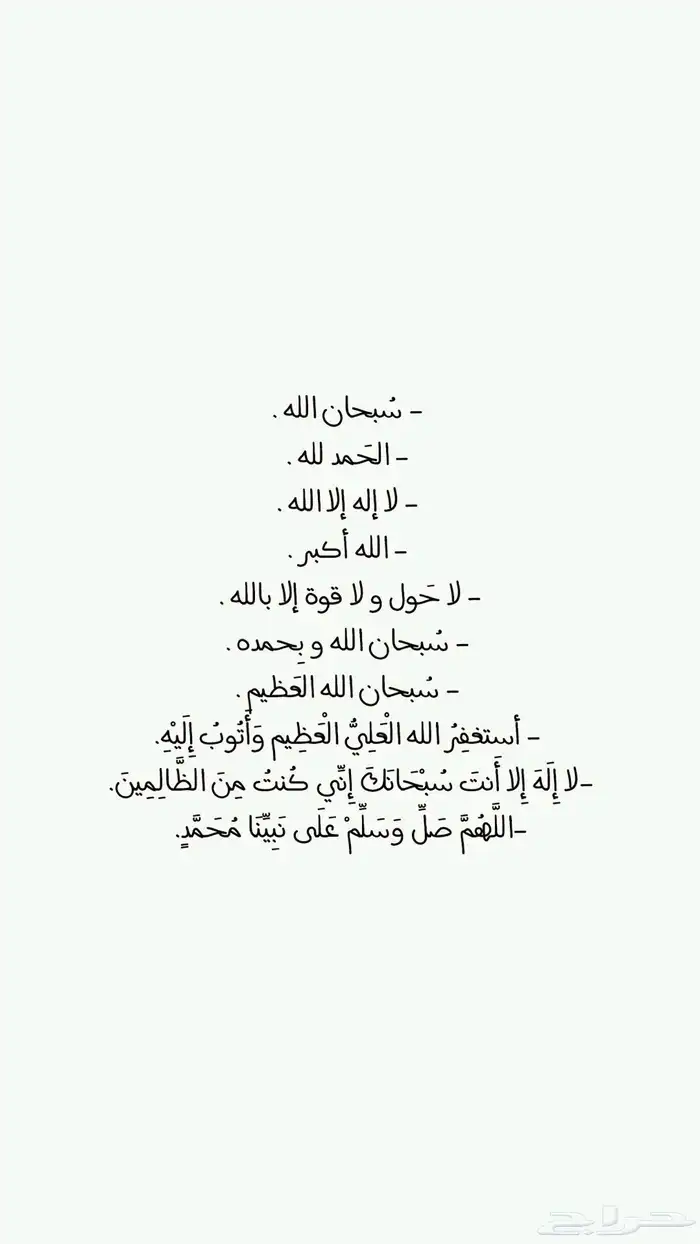 - سُبحان الله .
- الحَمد لله .
- لا إله إلا الله .
- الله أكبر .
- لا حَول و لا قوة إلا بالله .
- سُبحان الله و بِحمده .
- سُبحان الله العَظيم .
- أستغفِرُ الله الْعَلِيُّ الْعَظِيم وَأَتُوبُ إِلَيْهِ.
-لا إِلَهَ إِلا أَنتَ سُبْحَانَكَ إِنِّي كُنتُ مِنَ الظَّالِمِينَ.
-اللَّهُمَّ صَلِّ وَسَلِّمْ عَلَى نَبِيِّنَا مُحَمَّدٍ.
حراج